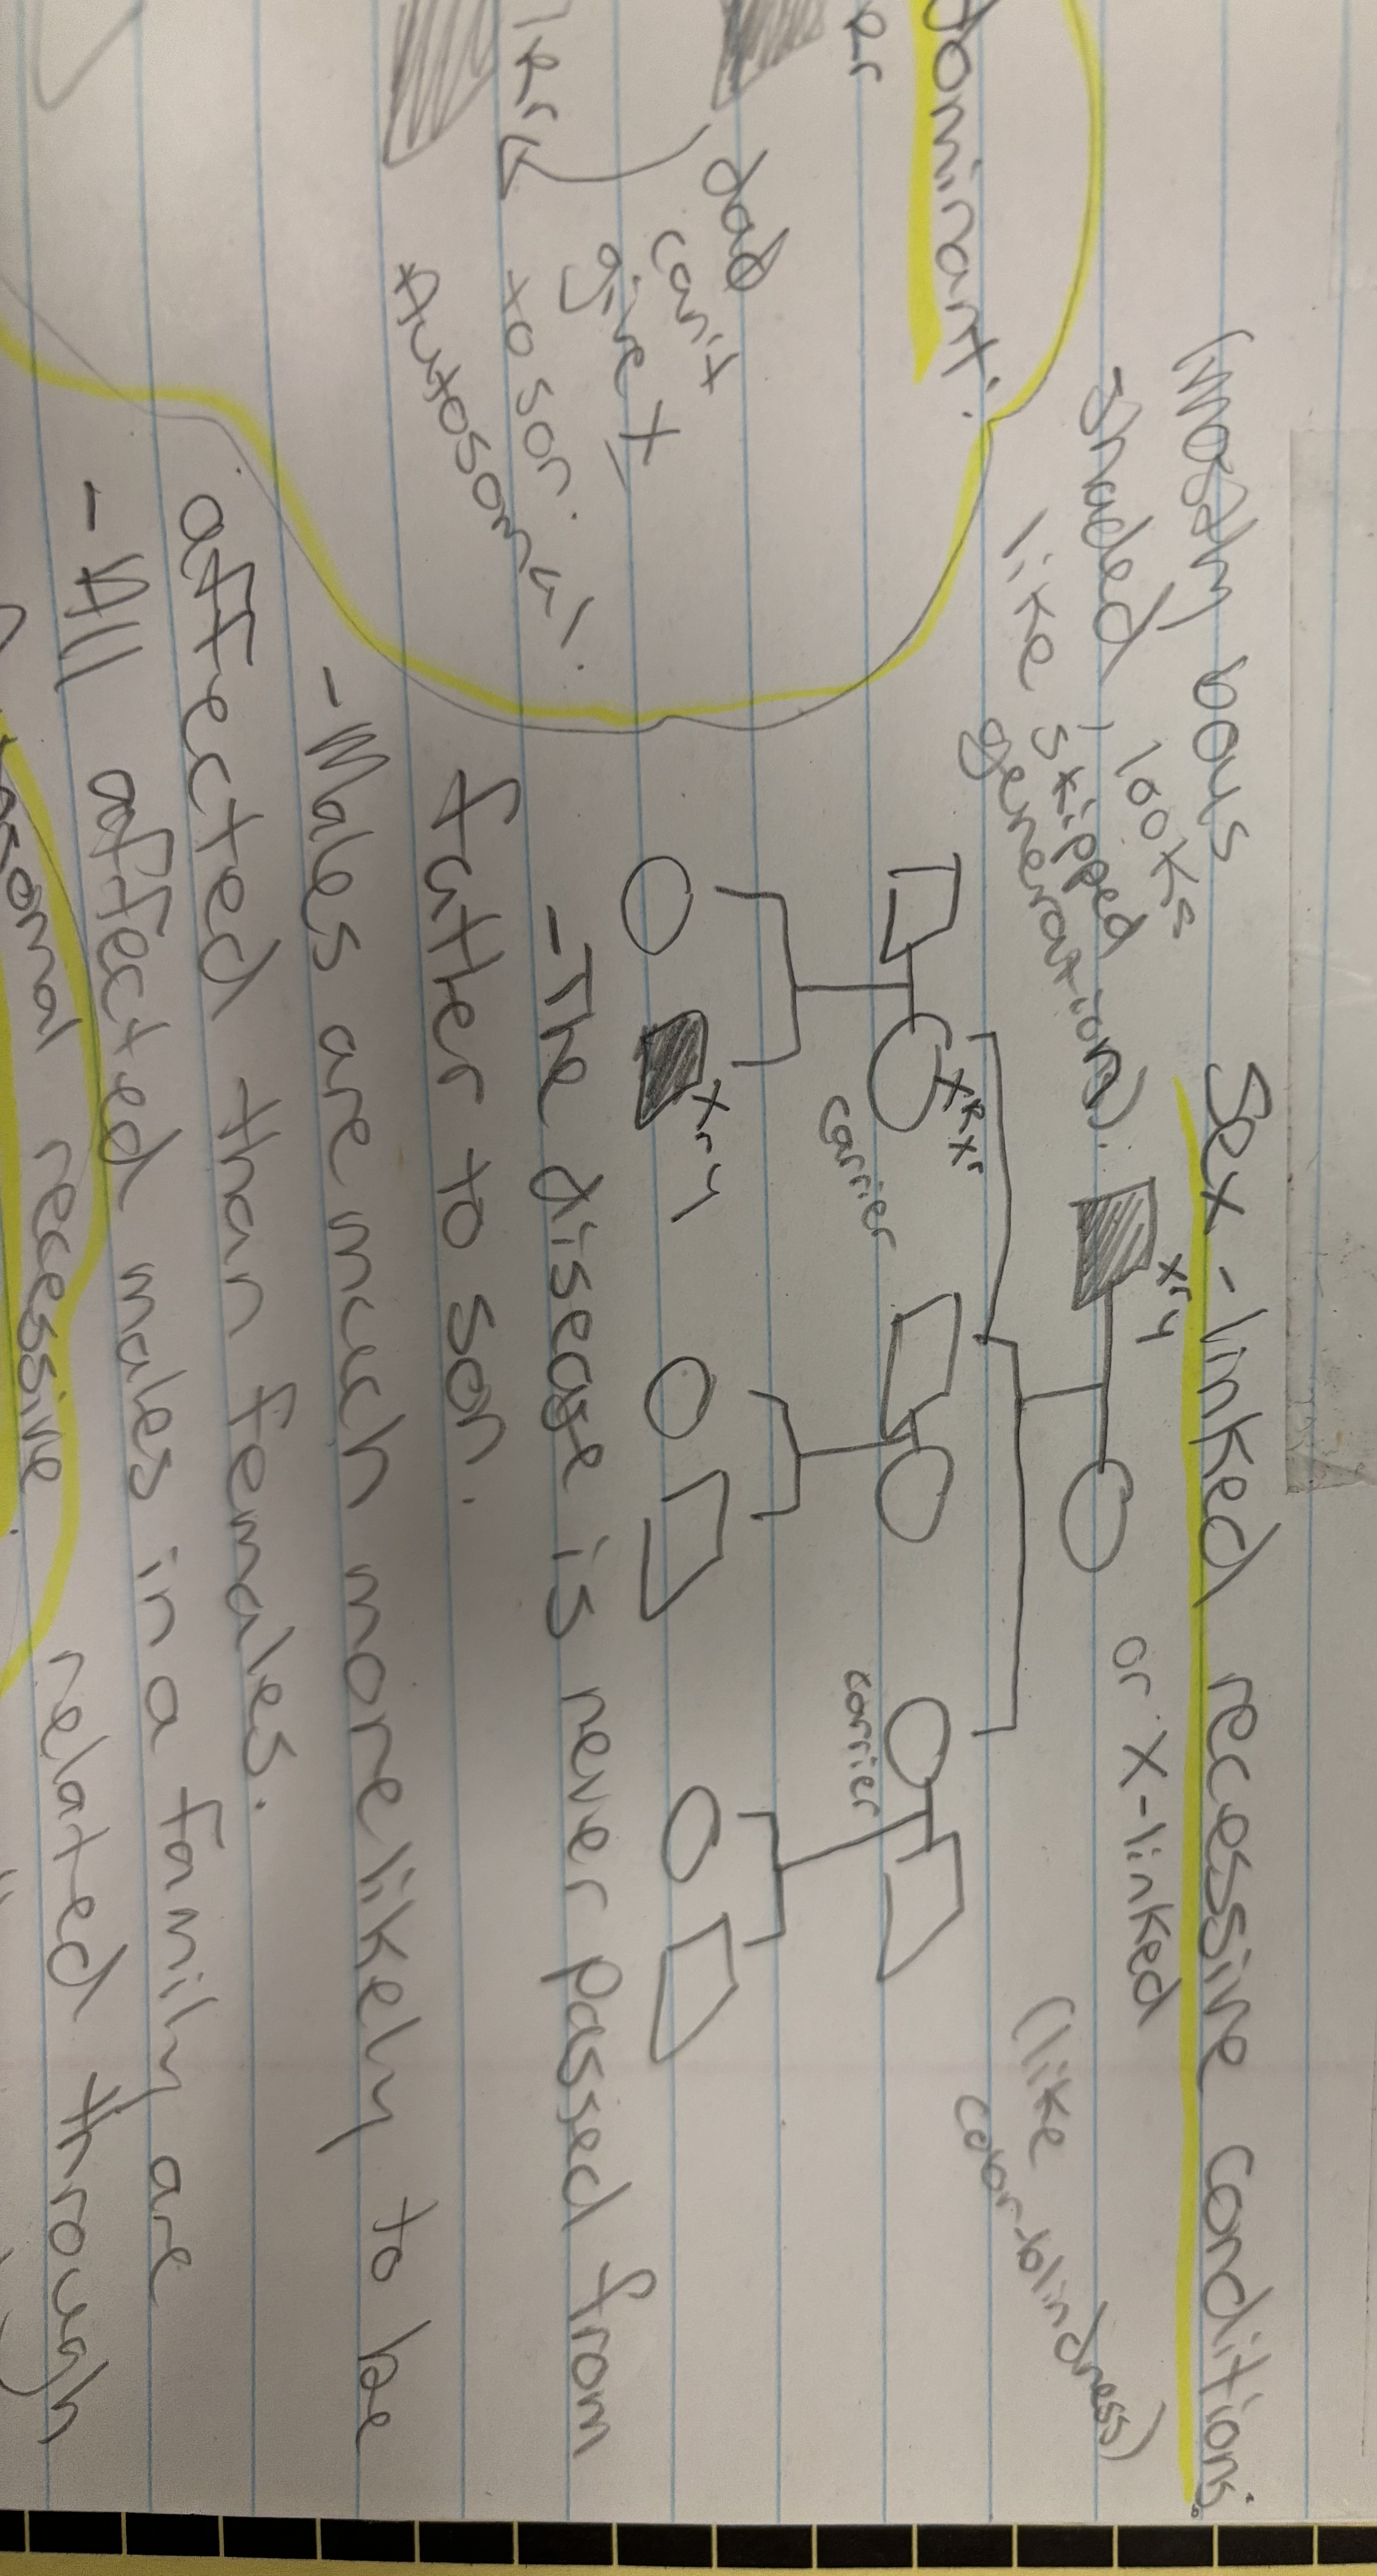 Sex-linked recessive conditions.
(Mostly boys
- shaded, looks
like skipped
generation).
XrY
or X-linked
(like
color-blindness)
XRXr
carrier
carrier
XrY
- The disease is never passed from
father to son.
- Males are much more likely to be
affected than females.
- All affected males in a family are
related through
recessive
dominant.
dad
can't
give X
to son.
Autosomal.